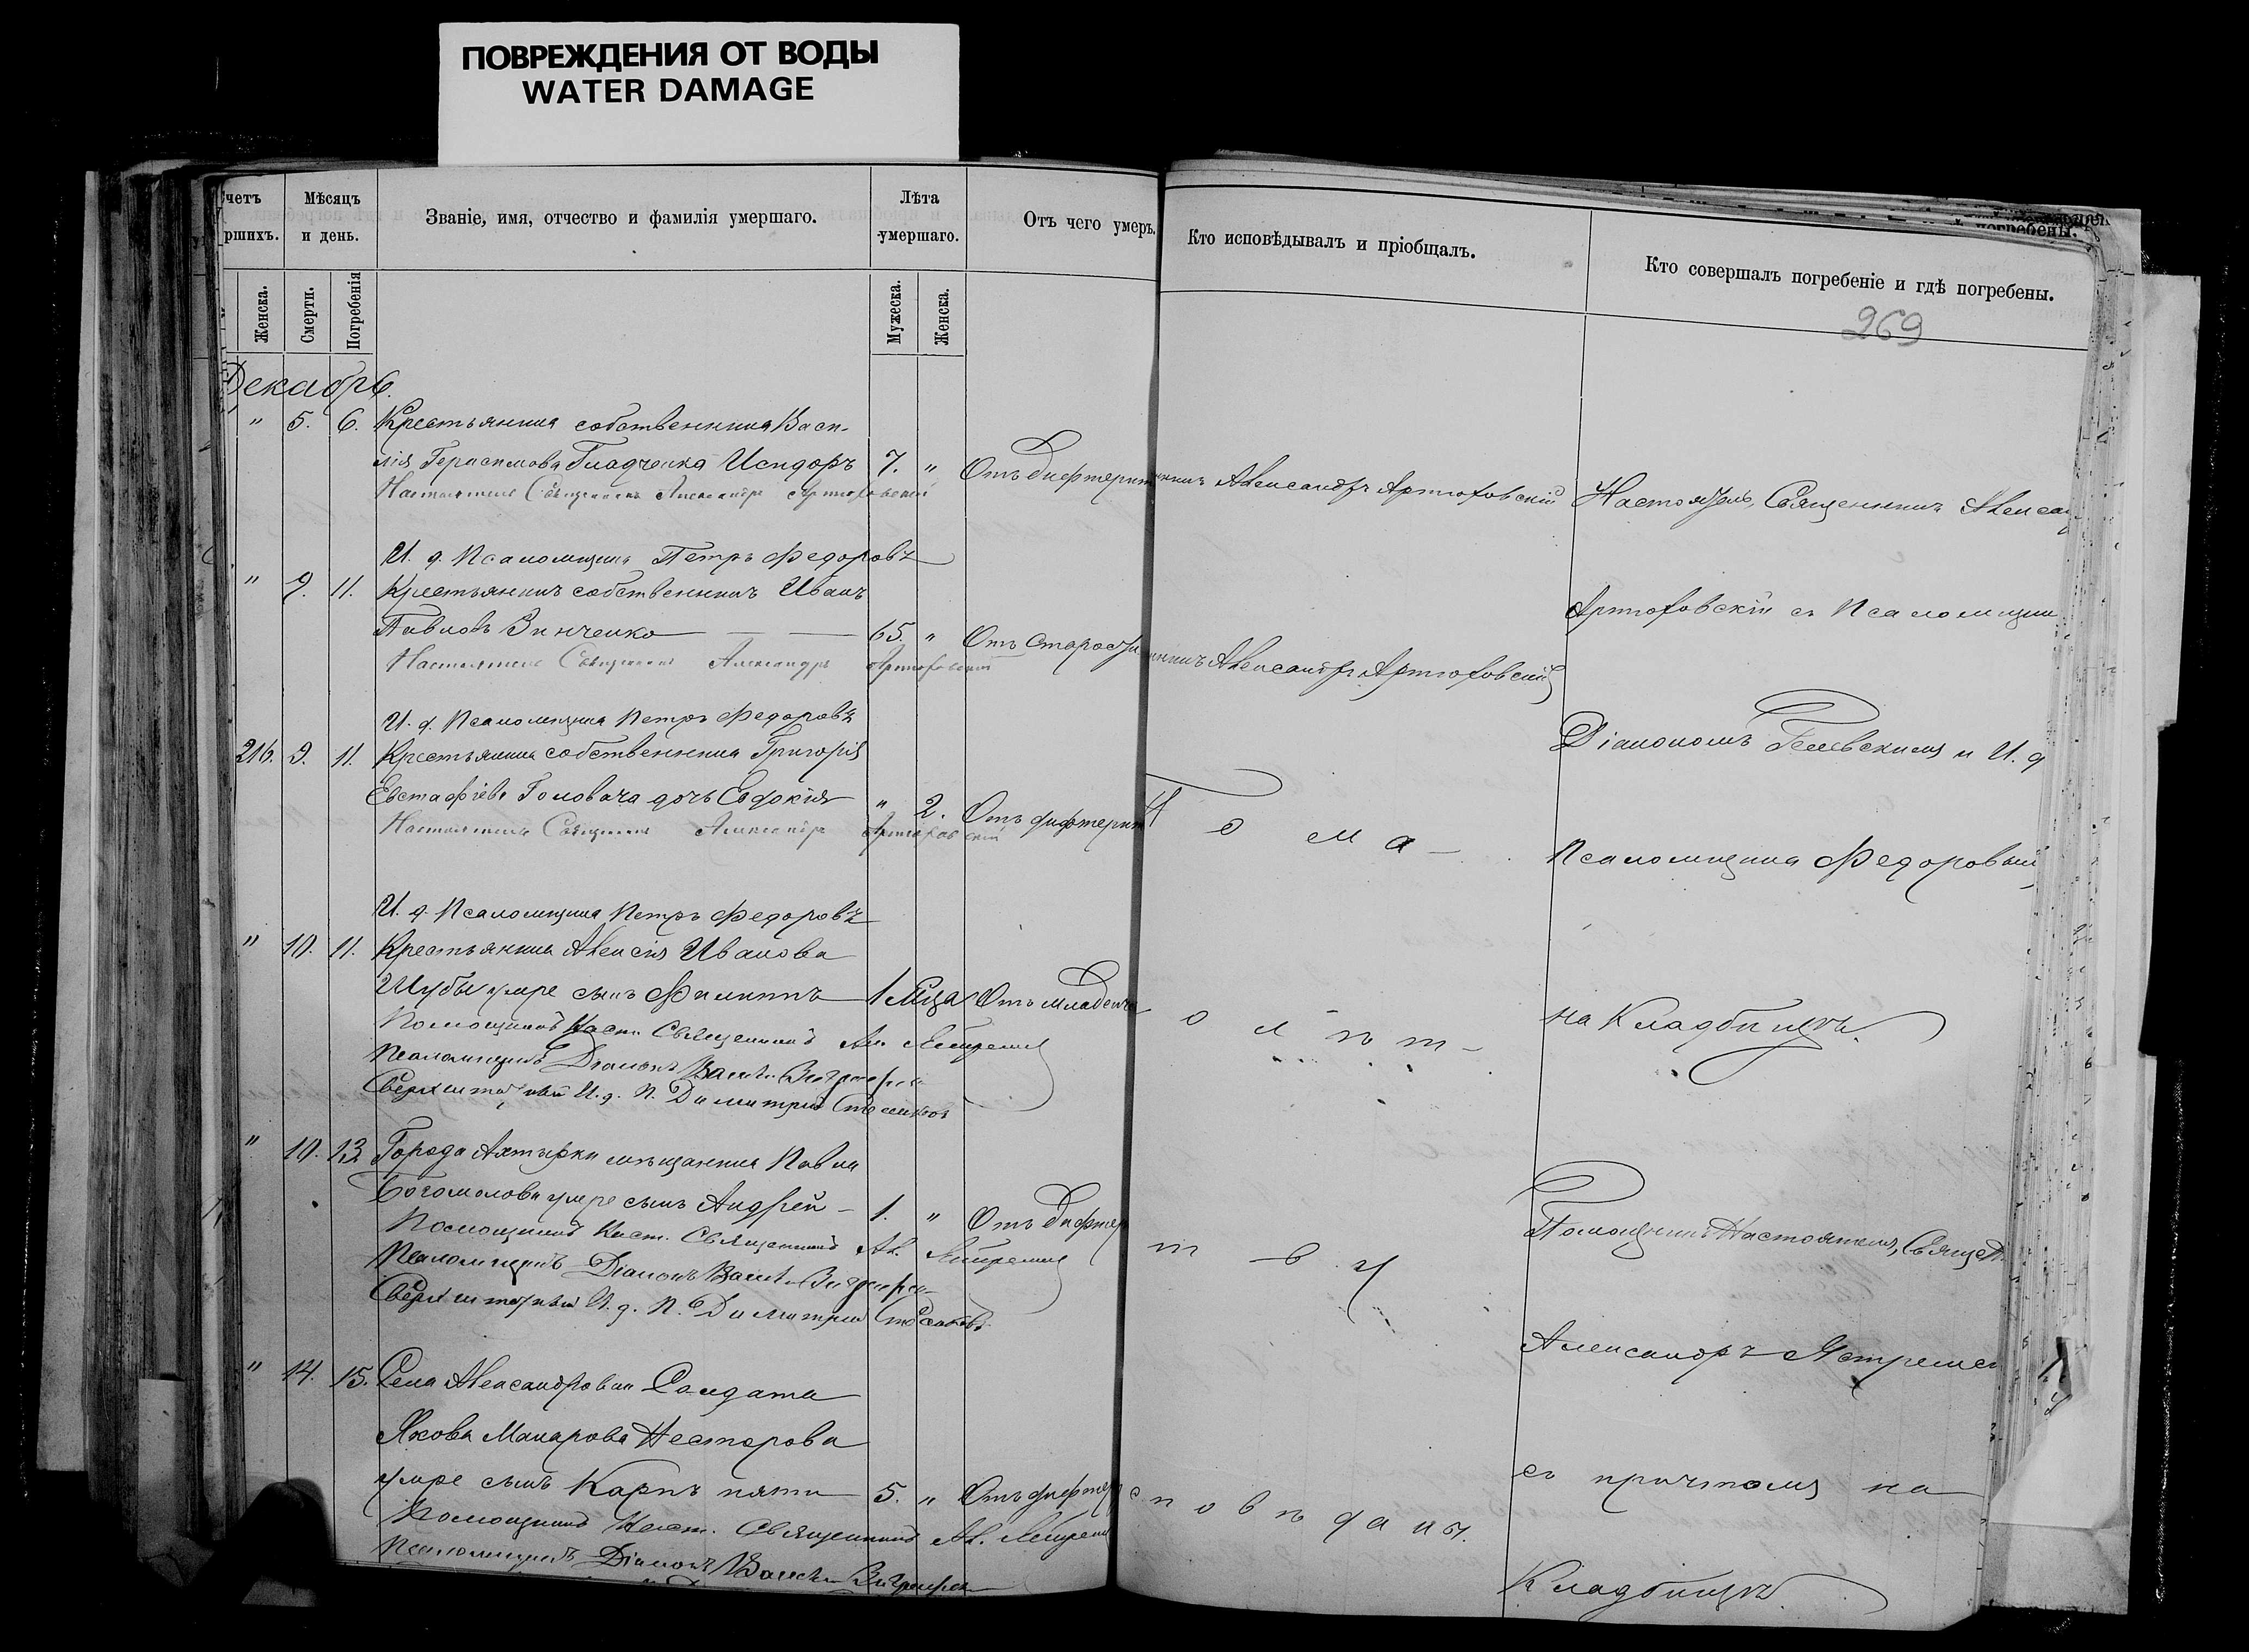 ПОВРЕЖДЕНИЯ ОТ ВОДЫ
WATER DAMAGE
Счетъ
ршихъ.
Мѣсяцъ
и день.
Званіе, имя, отчество и фамилія умершаго.
Лѣта
умершаго.
Отъ чего умеръ.
Женска.
Смерти.
Погребенія
Мужеска.
Женска.
Декабрь.
" 5. 6. Крестьянина собственника Васи-
лія Герасимова Гладченка Исидоръ 7. " Отъ дифтерит
Настоятель Священникъ Александръ Артюховскій
И. д. Псаломщика Петръ Федоровъ
" 9. 11. Крестьянинъ собственникъ Иванъ
Павловъ Зинченко 65. " Отъ старости
Настоятель Священникъ Александръ Артюховскій
И. д. Псаломщика Петръ Федоровъ
216. 9. 11. Крестьянина собственника Григорія
Евстафіева Головача дочь Евдокія " 2. Отъ дифтерит
Настоятель Священникъ Александръ Артюховскій
И. д. Псаломщика Петръ Федоровъ
" 10. 11. Крестьянина Алексія Иванова
Шубы умре сынъ Филиппъ 1 мѣца Отъ младенч
Помощникъ Наст. Священникъ Ал.
Псаломщикъ Діаконъ
Сверхштатный И. д. П. Димитрій
" 10. 13. Города Ахтырки мѣщанина Павла
Богомолова умре сынъ Андрей 1. " Отъ дифтер
Помощникъ Наст. Священникъ Ал.
Псаломщикъ Діаконъ
Сверхштатный И. д. П. Димитрій
" 14. 15. Села Александровки Солдата
Якова Макарова Нестерова
умре сынъ Карпъ пяти 5. " Отъ дифтер
Помощникъ Наст. Священникъ Ал.
Псаломщикъ Діаконъ
Кто исповѣдывалъ и пріобщалъ.
Кто совершалъ погребеніе и гдѣ погребены.
269
никъ Александръ Артюховскій
никъ Александръ Артюховскій
о м а
о л ѣ т
т в у
с п о в ѣ д а н ы.
Настоятель, Священникъ Алексан
Артюховскій съ Псаломщик
Діакономъ и И. д
Псаломщика Федоровым
на Кладбищѣ.
Помощникъ Настоятеля, Священ
Александръ
съ причтомъ на
Кладбищѣ.